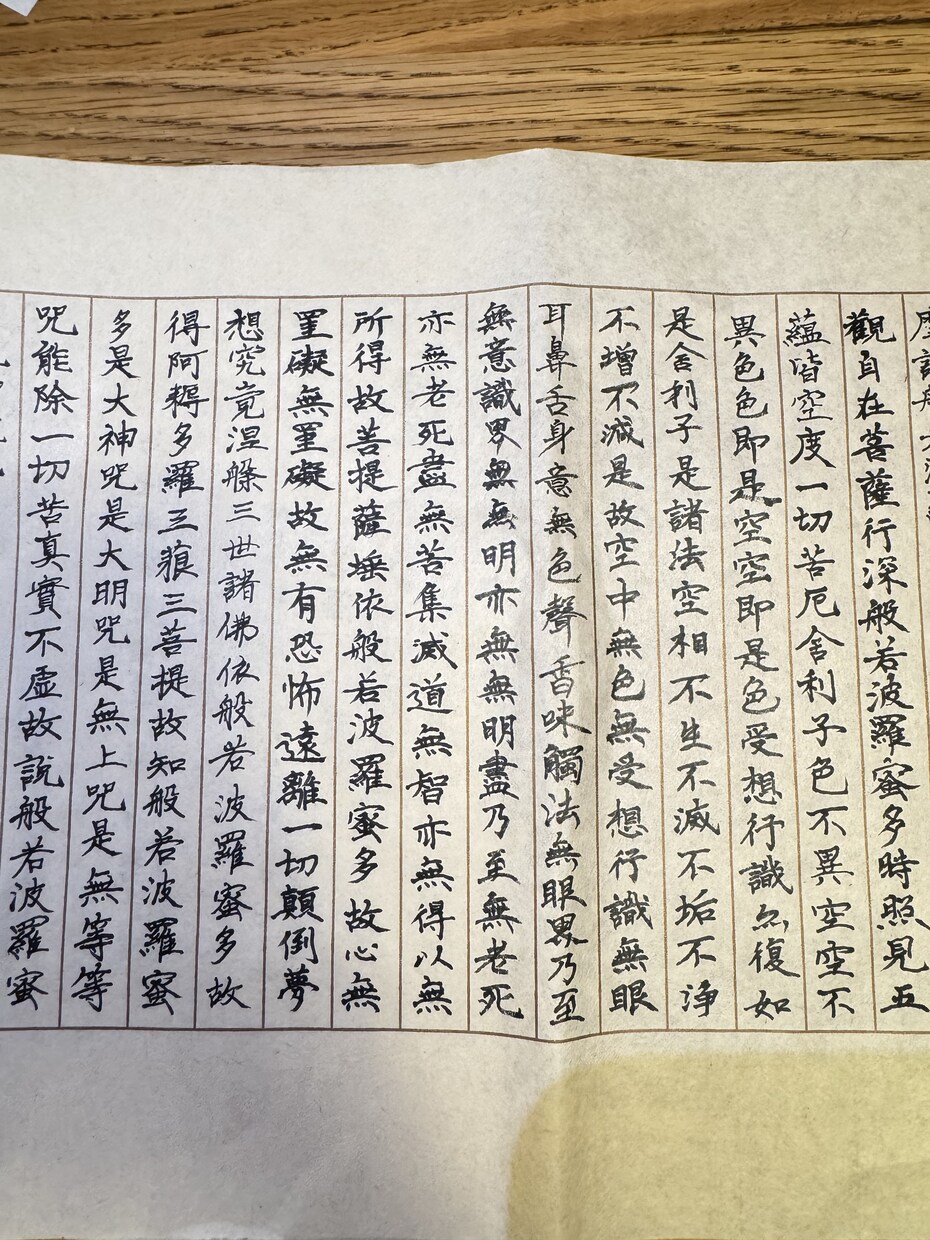 摩訶般
觀自在菩薩行深般若波羅蜜多時照見五
蘊皆空度一切苦厄舍利子色不異空空不
異色色即是空空即是色受想行識亦復如
是舍利子是諸法空相不生不滅不垢不淨
不增不減是故空中無色無受想行識無眼
耳鼻舌身意無色聲香味觸法無眼界乃至
無意識界無無明亦無無明盡乃至無老死
亦無老死盡無苦集滅道無智亦無得以無
所得故菩提薩埵依般若波羅蜜多故心無
罣礙無罣礙故無有恐怖遠離一切顛倒夢
想究竟涅槃三世諸佛依般若波羅蜜多故
得阿耨多羅三藐三菩提故知般若波羅蜜
多是大神咒是大明咒是無上咒是無等等
咒能除一切苦真實不虛故說般若波羅蜜